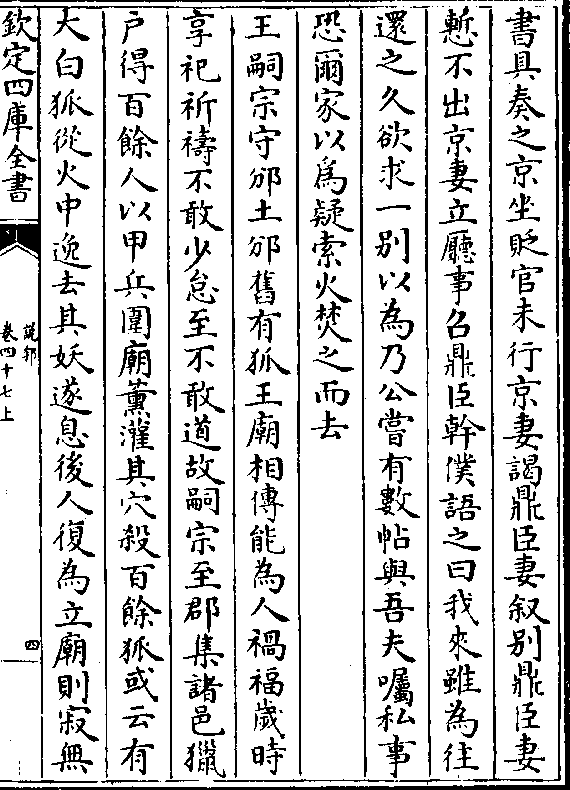 書具奏之京坐貶官未行京妻謁鼎臣妻叙別鼎臣妻
慙不出京妻立廳事召鼎臣幹僕語之曰我來雖為往
還之久欲求一別以為乃公嘗有數帖與吾夫囑私事
恐爾家以為疑索火焚之而去
王嗣宗守邠土邠舊有狐王廟相傳能為人禍福歲時
享祀祈禱不敢少怠至不敢道故嗣宗至郡集諸邑獵
户得百餘人以甲兵圍廟薰灌其穴殺百餘狐或云有
大白狐從火中逸去其妖遂息後人復為立廟則寂無
欽定四庫全書
説郛
卷四十七上
四